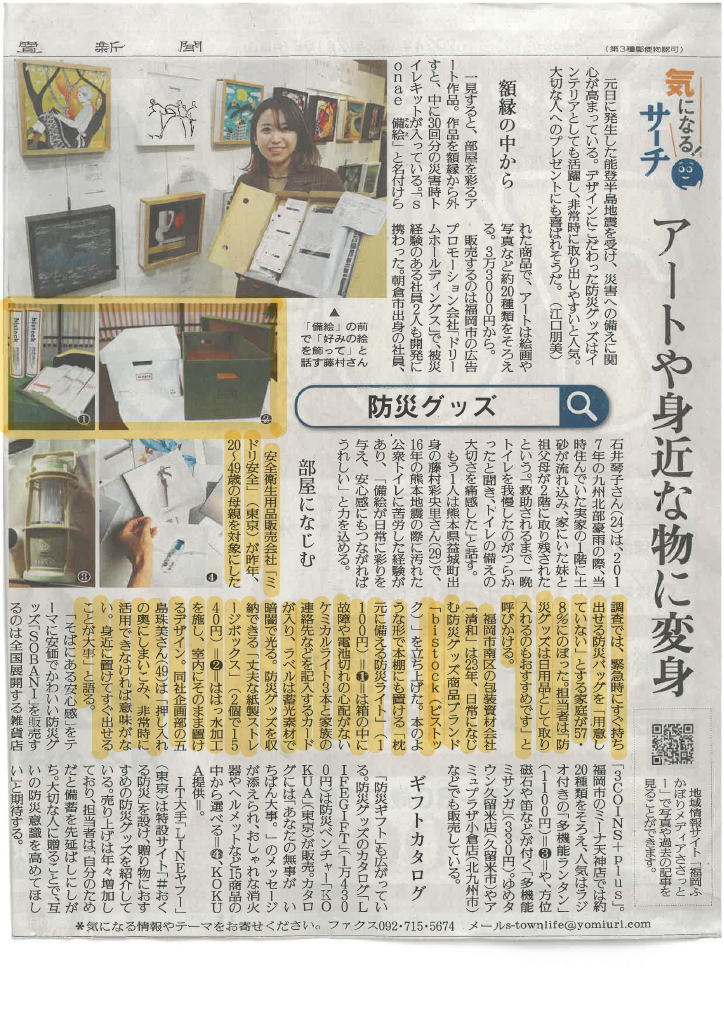 讀賣新聞
（第3種郵便物認可）
気になる!
サーチ
アートや身近な物に変身
元日に発生した能登半島地震を受け、災害への備えに関
心が高まっている。デザインにこだわった防災グッズはイ
ンテリアとしても活躍し、非常時に取り出しやすいと人気。
大切な人へのプレゼントにも喜ばれそうだ。（江口朋美）
額縁の中から
一見すると、部屋を彩るア
ート作品。作品を額縁から外
すと、中に30回分の災害時ト
イレキットが入っている。「s
onae　備絵」と名付けら
れた商品で、アートは絵画や
写真など約20種類をそろえ
る。3万3000円から。
販売するのは福岡市の広告
プロモーション会社「ドリー
ムホールディングス」で、被災
経験のある社員2人も開発に
携わった。朝倉市出身の社員、
▲
「備絵」の前
で「好みの絵
を飾って」と
話す藤村さん
防災グッズ
石井琴子さん(24)は、201
7年の九州北部豪雨の際、当
時住んでいた実家の1階に土
砂が流れ込み、家にいた妹と
祖父母が2階に取り残された
という。救助されるまで一晩
トイレを我慢したのがつらか
ったと聞き、トイレの備えの
大切さを痛感した」と話す。
もう1人は熊本県益城町出
身の藤村彩央里さん(29)で、
16年の熊本地震の際に汚れた
公衆トイレに苦労した経験が
あり、「備絵が日常に彩りを
与え、安心感にもつながれば
うれしい」と力を込める。
部屋になじむ
安全衛生用品販売会社「ミ
ドリ安全」（東京）が昨年、
20～49歳の母親を対象にした
調査では、緊急時にすぐ持ち
出せる防災バッグを「用意し
ていない」とする家庭が57・
8％にのぼった。担当者は「防
災グッズは日用品として取り
入れるのもおすすめです」と
呼びかける。
福岡市南区の包装資材会社
「清和」は23年、日常になじ
む防災グッズ商品ブランド
「bistock（ビストッ
ク）」を立ち上げた。本のよ
うな形で本棚にも置ける「枕
元に備える防災ライト」（1
100円）＝❶＝は箱の中に
故障や電池切れの心配がない
ケミカルライト3本と家族の
連絡先などを記入するカード
が入り、ラベルは蓄光素材で
暗闇で光る。防災グッズを収
納できる「丈夫な紙製ストレ
ージボックス」（2個で15
40円）＝❷＝ははっ水加工
を施し、室内にそのまま置け
るデザイン。同社企画部の五
島珠美さん(49)は「押し入れ
の奥にしまいこみ、非常時に
活用できなければ意味がな
い。身近に置けてすぐ出せる
ことが大事」と語る。
「そばにある安心感」をテ
ーマに安価でかわいい防災グ
ッズ「SOBANI」を販売す
るのは全国展開する雑貨店
「3COINS+plus」。
福岡市のミーナ天神店では約
20種類をそろえ、人気はラジ
オ付きの「多機能ランタン」
（1100円）＝❸＝や、方位
磁石や笛などが付く「多機能
ミサンガ」（330円）。ゆめタ
ウン久留米店（久留米市）やア
ミュプラザ小倉店（北九州市）
などでも販売している。
ギフトカタログ
「防災ギフト」も広がってい
る。防災グッズのカタログ「L
IFEGIFT」（1万430
0円）は防災ベンチャー「KO
KUA」（東京）が販売。カタロ
グには、「あなたの無事が　い
ちばん大事。」のメッセージ
が添えられ、おしゃれな消火
器やヘルメットなど15商品の
中から選べる＝❹、KOKU
A提供＝。
IT大手「LINEヤフー」
（東京）は特設サイト「#おく
る防災」を設け、贈り物におす
すめの防災グッズを紹介して
いる。売り上げは年々増加し
ており、担当者は「自分のため
だと備蓄を先延ばしにしが
ち。大切な人に贈ることで、互
いの防災意識を高めてほし
い」と期待する。
地域情報サイト「福岡ふ
かぼりメディアささっと
ー」で写真や過去の記事を
見ることができます。
bistock
bistock
①
②
③
④
＊気になる情報やテーマをお寄せください。ファクス092・715・5674　メールs-townlife@yomiuri.com